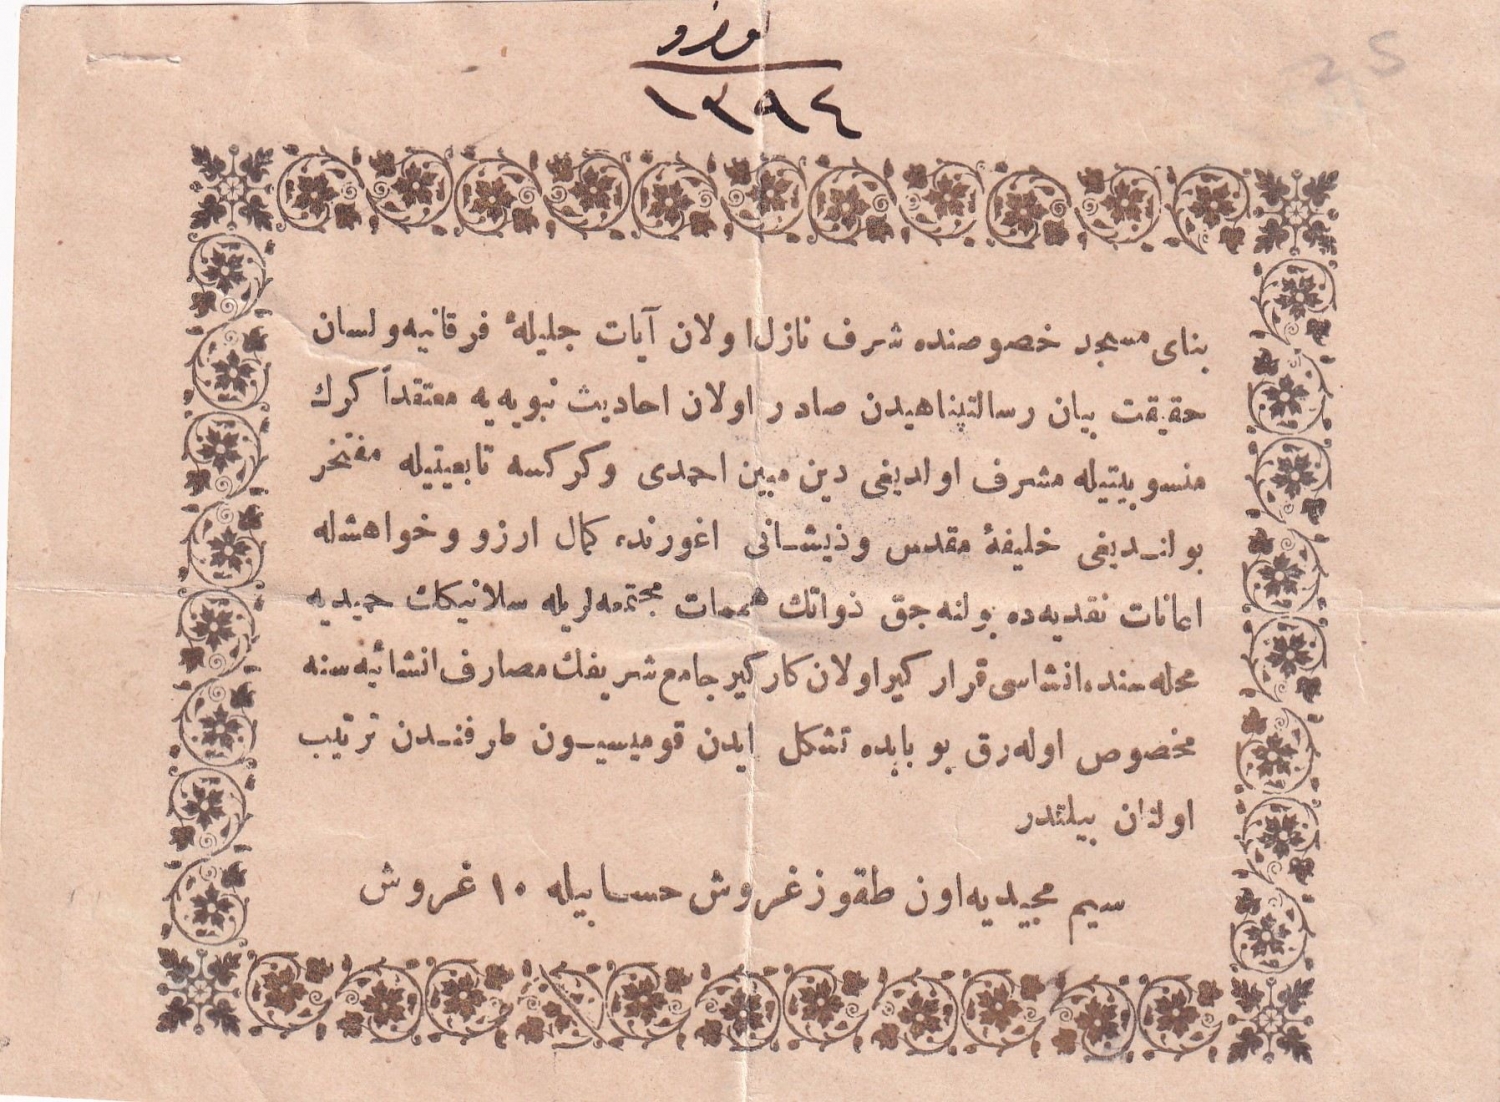 نومرو
١٣٩٤
25
بنای مسجد خصوصنده شرف نازل اولان آیات جلیلۀ فرقانیه و لسان
حقیقت بیان رسالتپناهیدن صادر اولان احادیث نبویه یه معتقداً کرك
منسوبیتیله مشرف اولدیغی دین مبین احمدی وکرکسه تابعیتیله مفتخر
بولندیغی خلیفۀ مقدس وذیشانی اغورنده کمال ارزو و خواهشله
اعانات نقدیه ده بولنه جق ذواتك همات مجتمعه لریله سلانیكك حمیدیه
محله سنده انشاسی قرارکیر اولان کارکیر جامع شریفك مصارف انشائیه سنه
مخصوص اوله رق بو بابده تشکل ایدن قومیسیون طرفندن ترتیب
اولنان بیلتدر
سیم مجیدیه اون طقوز غروش حسابیله ١٠ غروش